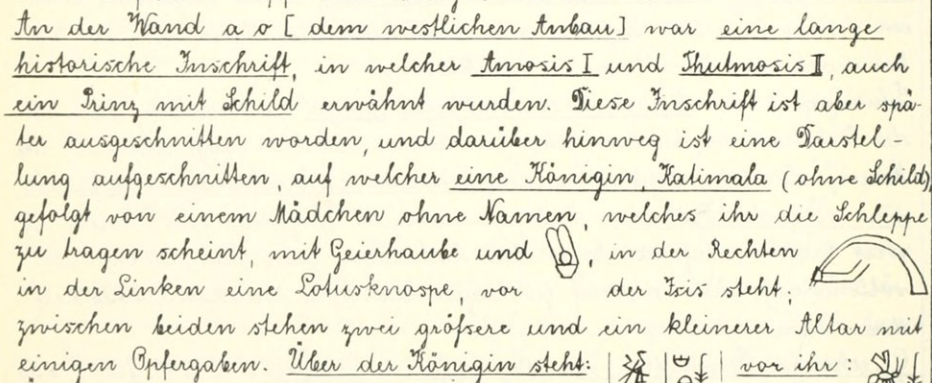 An der Wand a o [ dem westlichen Anbau] war eine lange
historische Inschrift, in welcher Amosis I und Thutmosis II, auch
ein Prinz mit Schild erwähnt wurden. Diese Inschrift ist aber spä-
ter ausgeschnitten worden, und darüber hinweg ist eine Darstel-
lung aufgeschnitten, auf welcher eine Königin, Katimala (ohne Schild),
gefolgt von einem Mädchen ohne Namen, welches ihr die Schleppe
zu tragen scheint, mit Geierhaube und , in der Rechten
in der Linken eine Lotusknospe, vor der Isis steht;
zwischen beiden stehen zwei größere und ein kleinerer Altar mit
einigen Opfergaben. Über der Königin steht: vor ihr: